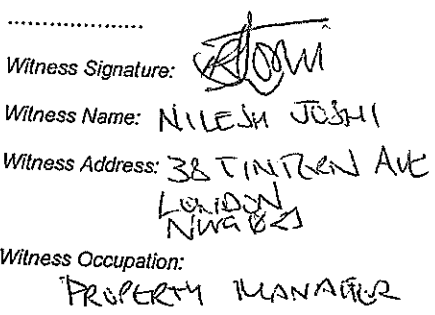 ....................
Witness Signature:
Witness Name: NILESH JOSHI
Witness Address: 38 TINTERN AVE
LONDON
Witness Occupation:
PROPERTY MANAGER